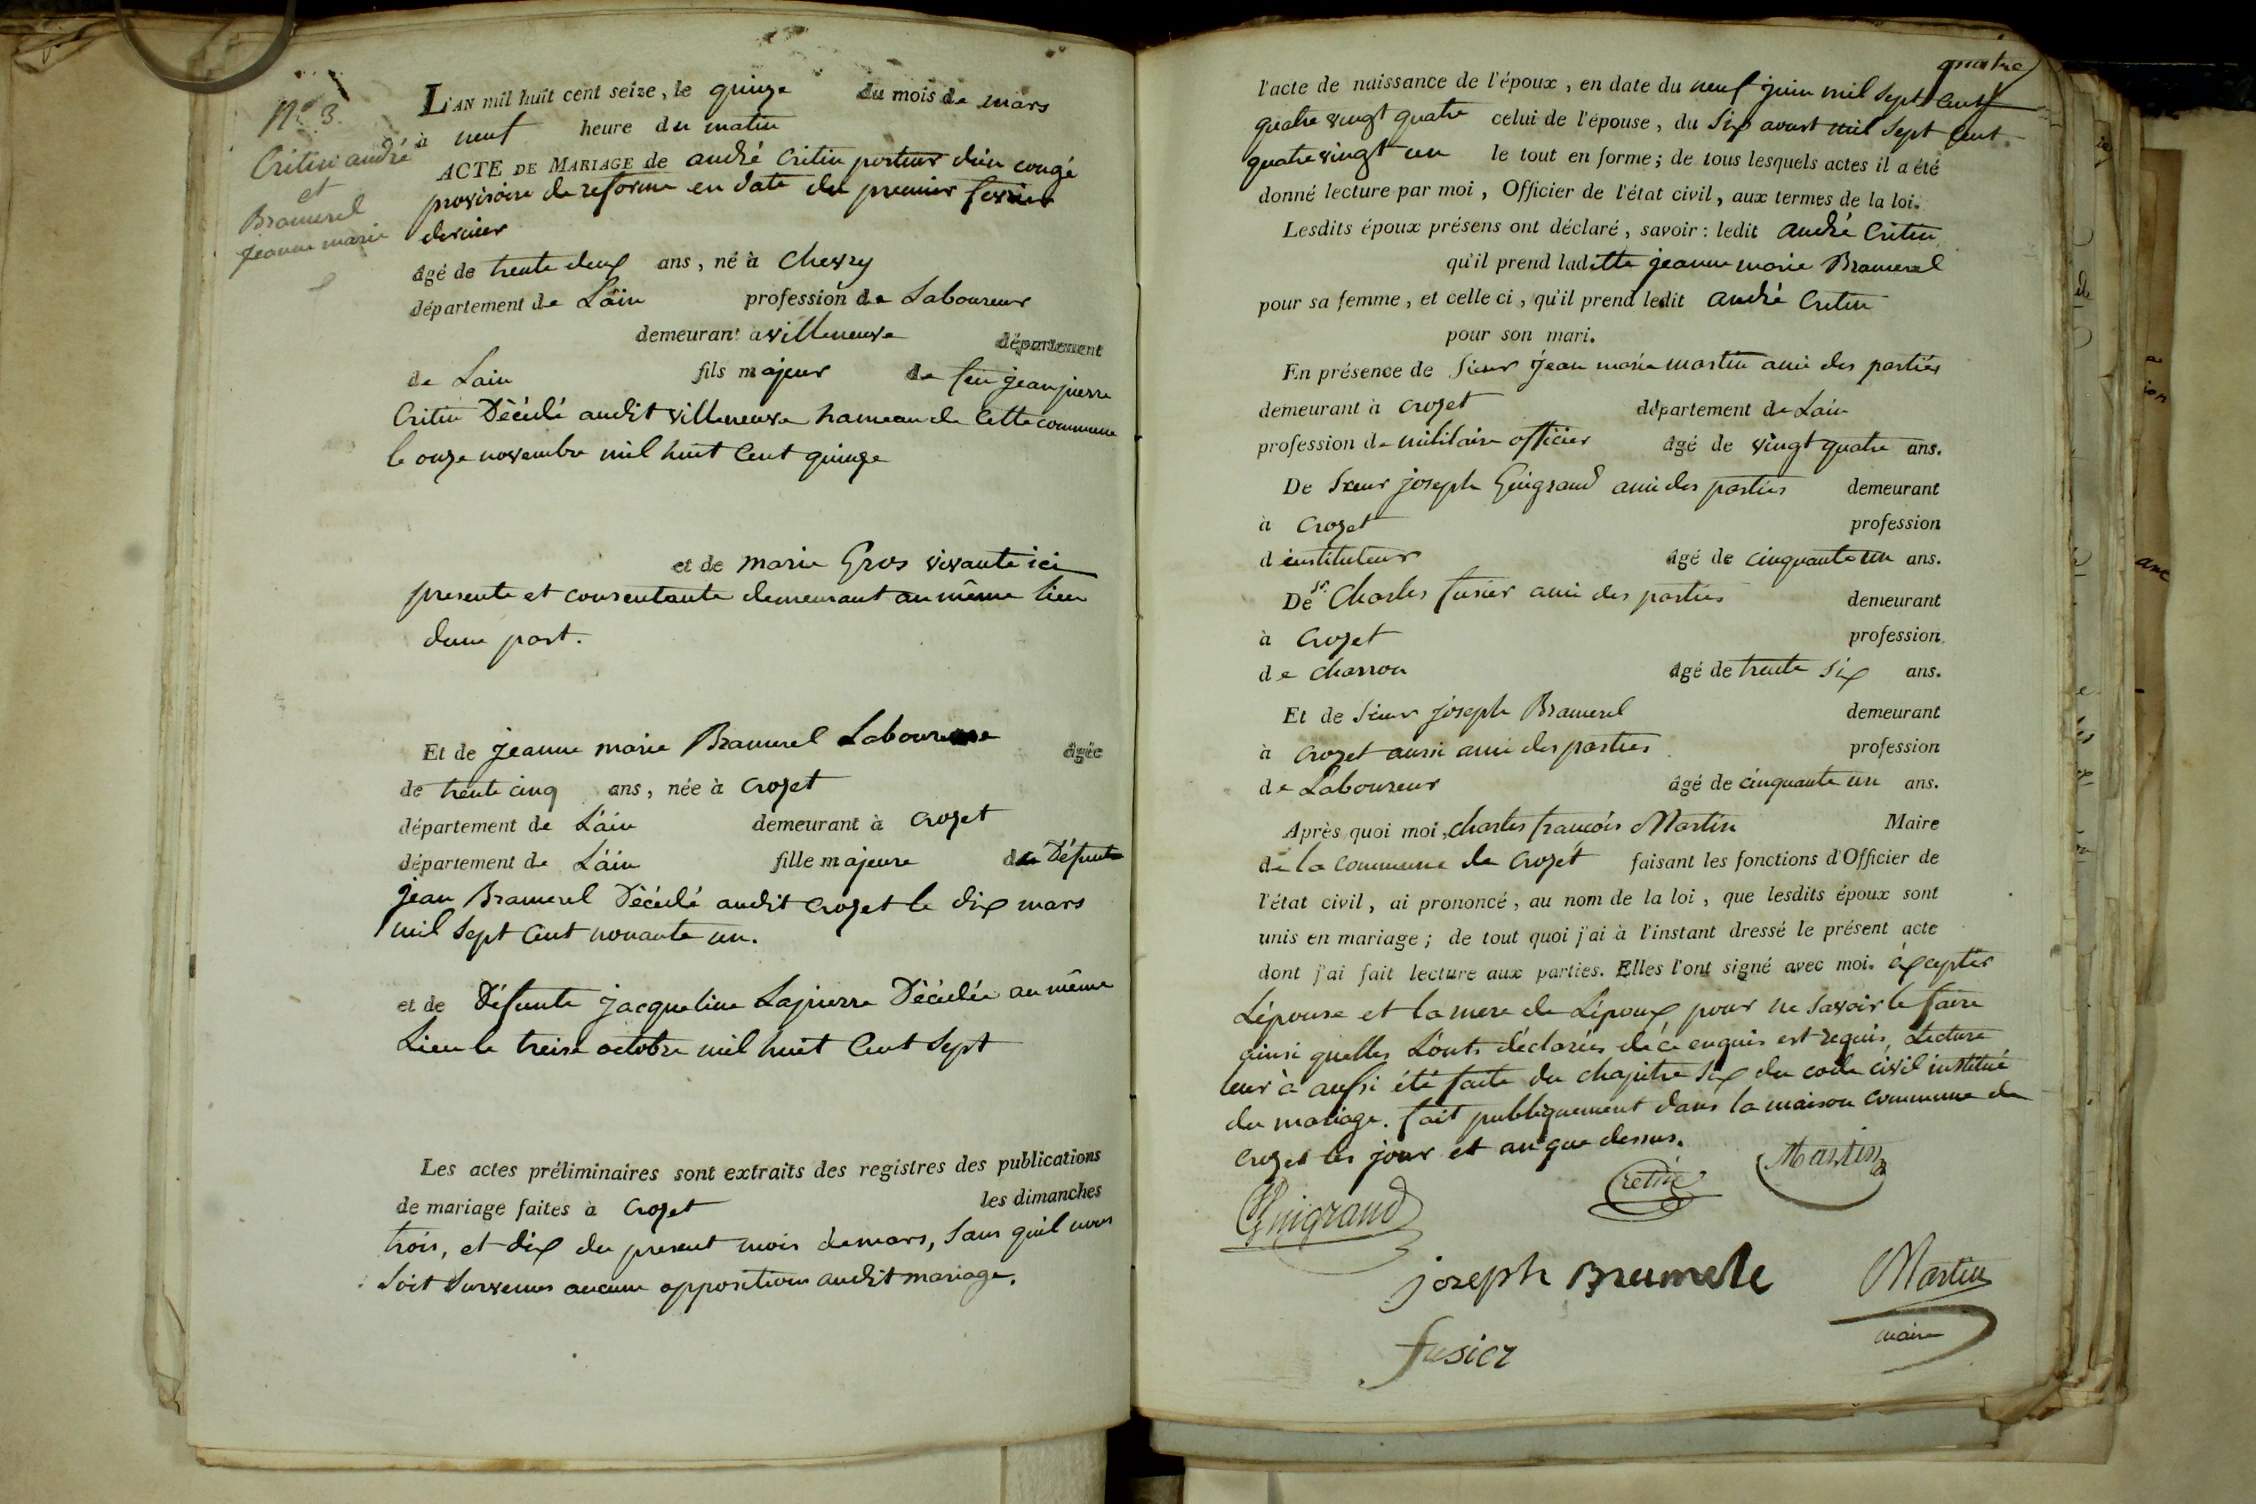 N.° 3.
Critin andré
et
Bramerel
jeanne marie
L'AN mil huit cent seize, le quinze du mois de mars
à neuf heure du matin
ACTE DE MARIAGE de andré Critin porteur d'un congé
provisoire de reforme en date du premier fevrier
dernier
âgé de trente deux ans, né à Chevry
département de L'ain profession de Laboureur
demeurant a villeneuve département
de Lain fils majeur de feu jean pierre
Critin Décédé audit villeneuve hameau de Cette commune
le onze novembre mil huit Cent quinze
et de marie Gros vivante ici
presente et consentante demeurant au même lieu
dune part.
Et de jeanne marie Bramerel Laboureuse âgée
de trente cinq ans, née à Crozet
département de L'ain demeurant à Crozet
département de L'ain fille majeure de Défunt
jean Bramerel Décédé audit Crozet le dix mars
mil Sept Cent nonante un.
et de Défunte jacqueline Lapierre Décédée au même
Lieu le treise octobre mil huit Cent Sept
Les actes préliminaires sont extraits des registres des publications
de mariage faites à Crozet les dimanches
trois, et dix du present mois de mars, Sans quil nous
Soit Survenus aucune oppositions audit mariage.
quatre
l'acte de naissance de l'époux, en date du neuf juin mil Sept Cent
quatre vingt quatre celui de l'épouse, du Six avout mil Sept Cent
quatre vingt un le tout en forme; de tous lesquels actes il a été
donné lecture par moi, Officier de l'état civil, aux termes de la loi.
Lesdits époux présens ont déclaré, savoir: ledit André Critin
qu'il prend laditte jeanne marie Bramerel
pour sa femme, et celle ci, qu'il prend ledit André Critin
pour son mari.
En présence de Sieur jean marie martin ami des parties
demeurant à Crozet département de Lain
profession de militaire officier âgé de vingt quatre ans.
De Sieur joseph Guigrand ami des parties demeurant
à Crozet profession
d instituteur âgé de cinquante un ans.
De Sr. Charles fusier ami des parties demeurant
à Crozet profession
de charron âgé de trente Six ans.
Et de Sieur joseph Bramerel demeurant
à Crozet aussi ami des parties profession
de Laboureur âgé de cinquante un ans.
Après quoi moi, charles françois Martin Maire
de la Commune de Crozet faisant les fonctions d'Officier de
l'état civil, ai prononcé, au nom de la loi, que lesdits époux sont
unis en mariage; de tout quoi j'ai à l'instant dressé le présent acte
dont j'ai fait lecture aux parties. Elles l'ont signé avec moi. éxceptés
Lépouse et la mere de Lépoux pour ne Savoir le faire
ainsi quelles L'ont déclarées de cé enquis est requis, Lecture
leur à aussi été faite du chapitre Six du code civil institué
du mariage. fait publiquement dans la maison commune de
Crozet les jour et an que dessus.
Martin
Cretin
Guigrand
joseph Bramele
Martin
maire
fusier